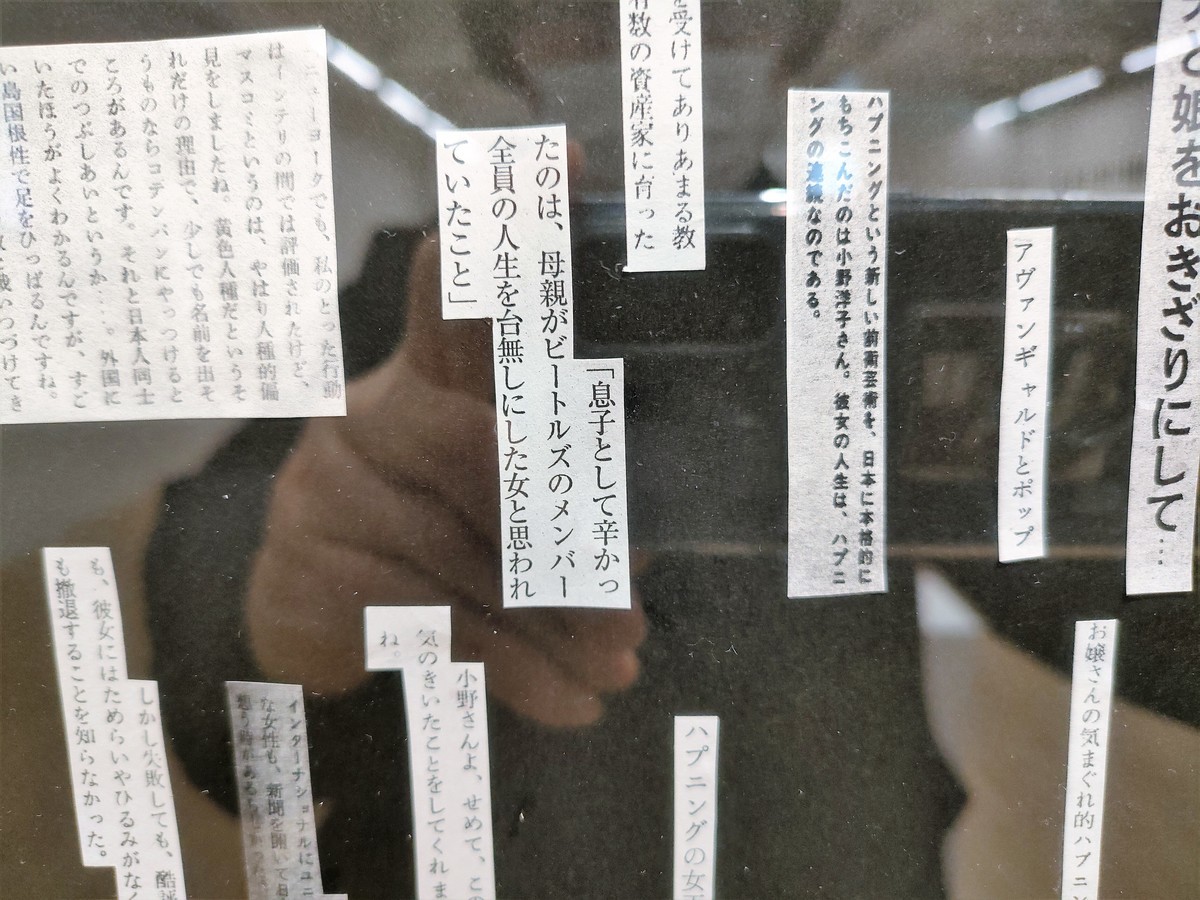 と娘をおきざりにして…
アヴァンギャルドとポップ
お嬢さんの気まぐれ的ハプニン
ハプニングという新しい前衛芸術を、日本に本格的に
もちこんだのは小野洋子さん。彼女の人生は、ハプニ
ングの連続なのである。
を受けてありあまる教
有数の資産家に育った
ハプニングの女
「息子として辛かっ
たのは、母親がビートルズのメンバー
全員の人生を台無しにした女と思われ
ていたこと」
小野さんよ、せめて、この
気のきいたことをしてくれま
ね。
ニューヨークでも、私のとった行動
はインテリの間では評価されたけど、
マスコミというのは、やはり人種的偏
見をしましたね。黄色人種だというそ
れだけの理由で、少しでも名前を出そ
うものならコテンパンにやっつけると
ころがあるんです。それと日本人同士
でのつぶしあいというか…。外国に
いたほうがよくわかるんですが、すど
い島国根性で足をひっぱるんですね。
戦いつづけてき
インターナショナルにユニ
な女性も、新聞を開いて
しかし失敗しても、酷評
も、彼女にはためらいやひるみがなく
も撤退することを知らなかった。